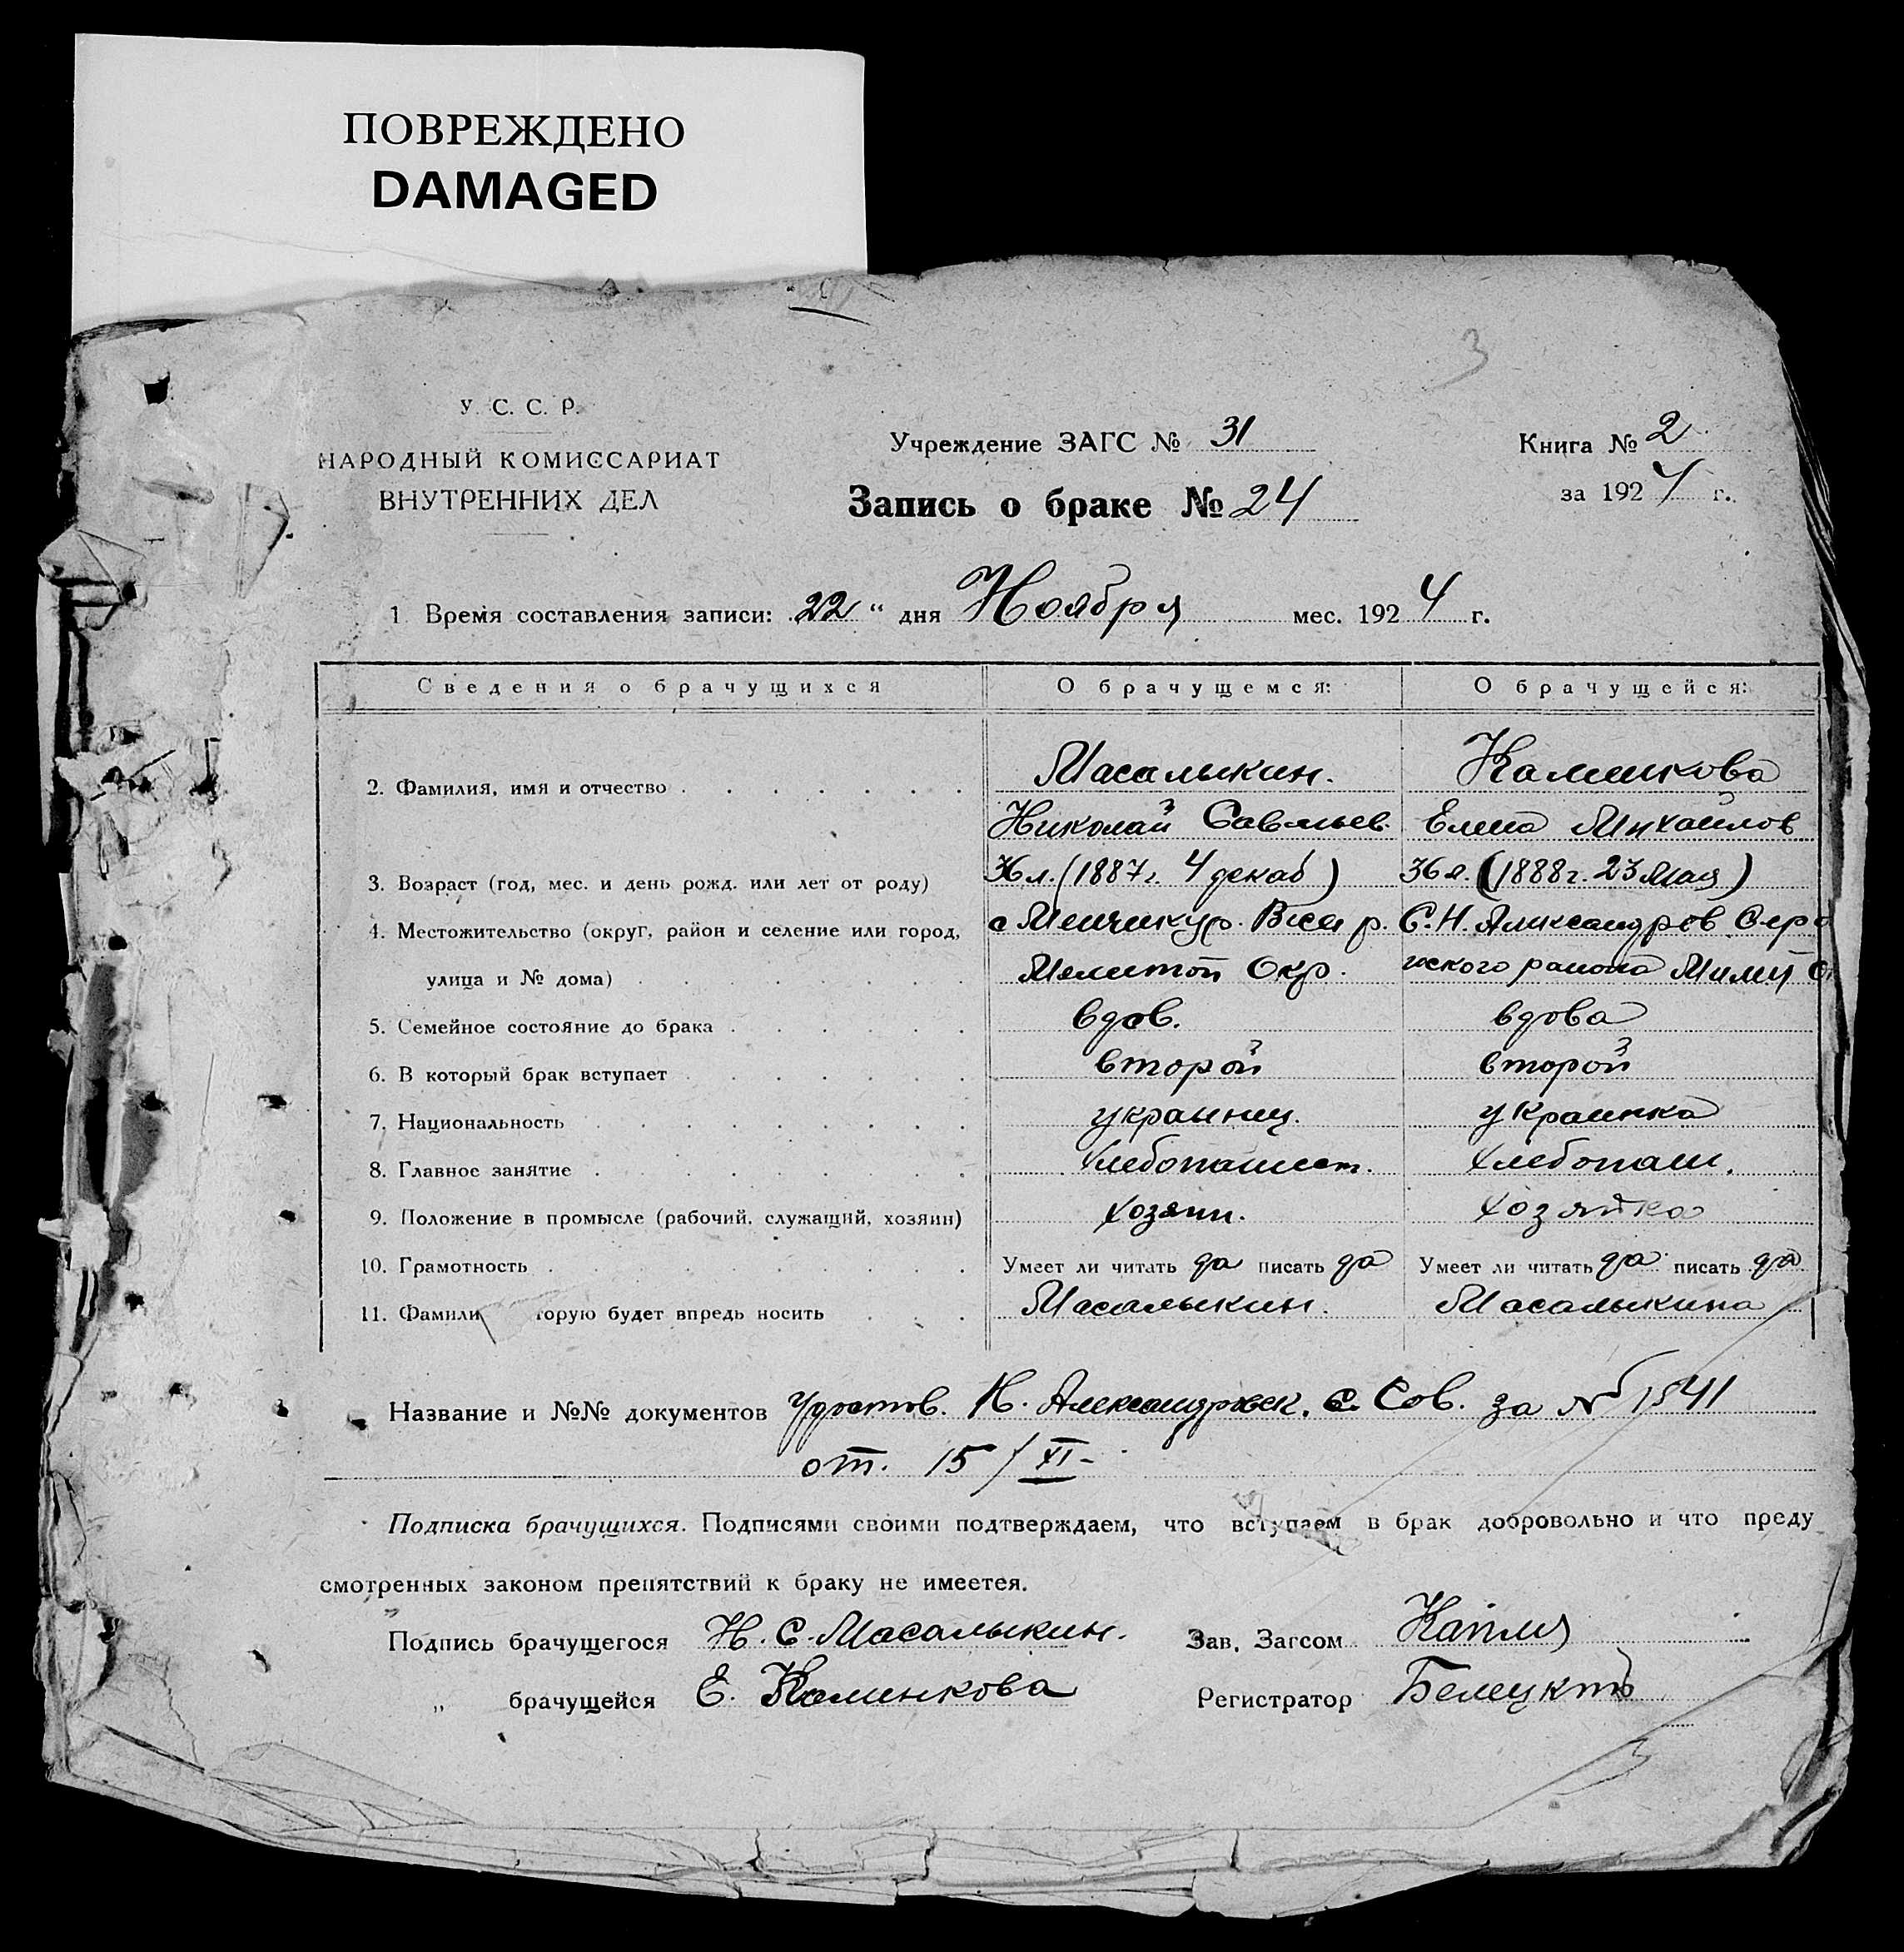 ПОВРЕЖДЕНО
DAMAGED
3
У. С. С. Р.
НАРОДНЫЙ КОМИССАРИАТ
ВНУТРЕННИХ ДЕЛ
Учреждение ЗАГС № 31
Запись о браке № 24
Книга № 2
за 1924 г.
1 Время составления записи: 22 " дня Ноября мес. 1924 г.
Сведения о брачущихся О брачущемся: О брачущейся:
2. Фамилия, имя и отчество Масалыкин. Каменкова
Николай Савельев. Елена Михайлов
3. Возраст (год, мес. и день рожд. или лет от роду) 36 л. (1887 г. 4 декаб) 36 л. (1888 г. 23 мая)
4. Местожительство (округ, район и селение или город, с Менчикур. Весел р. С. Н. Александров Серо
улица и № дома) Мелитоп Окр. гоского района Мелит О
5. Семейное состояние до брака вдов. вдова
6. В который брак вступает второй второй
7. Национальность украинец. украинка
8. Главное занятие хлебопашест. хлебопаш.
9. Положение в промысле (рабочий, служащий, хозяин) хозяин. хозяйка
10. Грамотность Умеет ли читать да писать да Умеет ли читать да писать да
11. Фамили торую будет впредь носить Масалыкин. Масалыкина
Название и №№ документов Удостов. Н. Александровск. С. Сов. за № 1541
от. 15/XI-
Подписка брачущихся. Подписями своими подтверждаем, что вступаем в брак добровольно и что преду
смотренных законом препятствий к браку не имеется.
Подпись брачущегося Н. С. Масалыкин. Зав. Загсом Капля
„ брачущейся Е. Каменкова Регистратор Белецкий